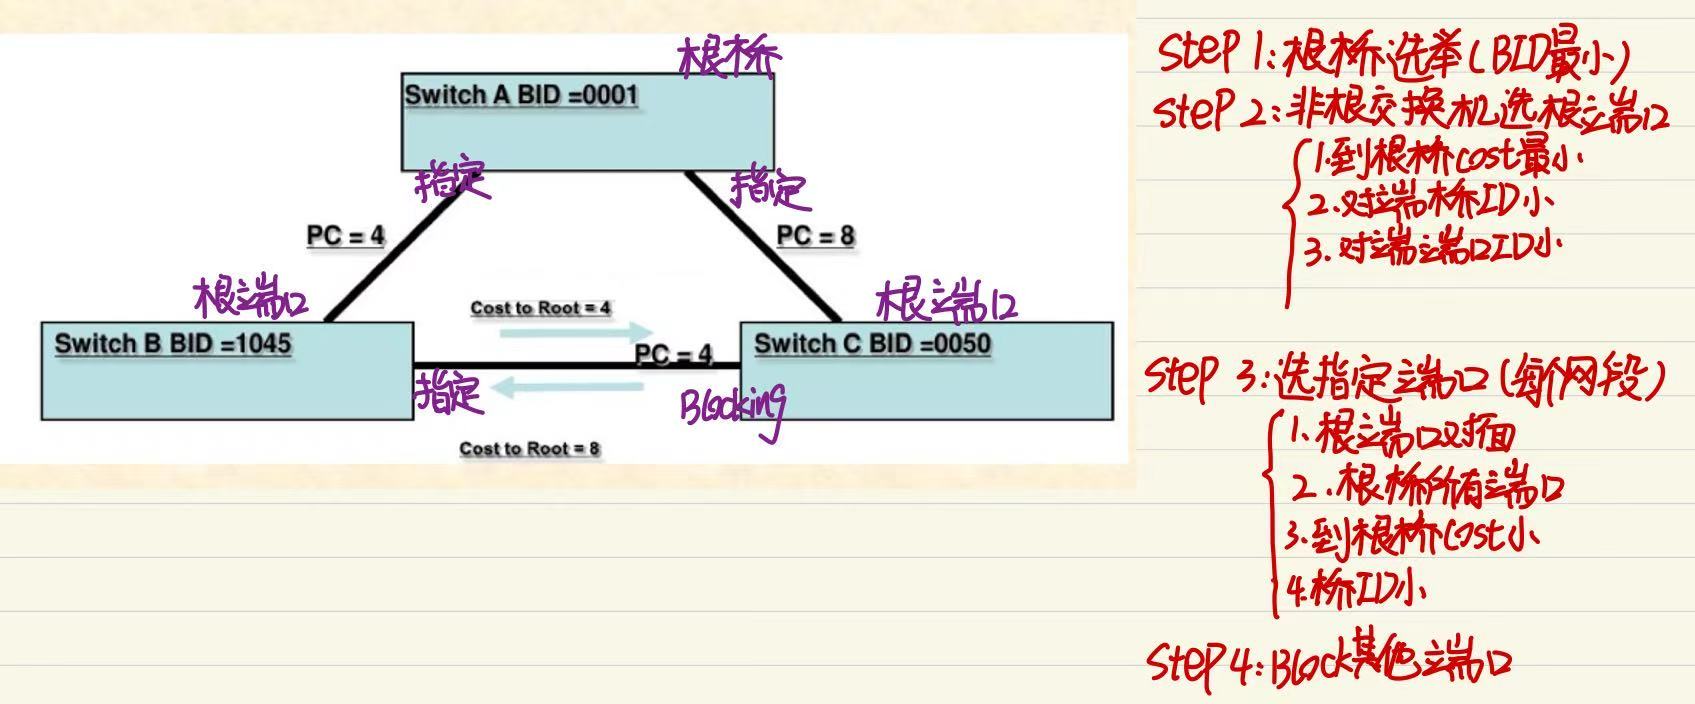 根桥
Switch A BID =0001
指定
指定
PC = 4
PC = 8
根端口
根端口
Cost to Root = 4
Switch B BID =1045
PC = 4
Switch C BID =0050
指定
Blocking
Cost to Root = 8
Step 1:根桥选举(BID最小)
Step 2:非根交换机选根端口
1.到根桥cost最小.
2.对端桥ID小
3.对端端口ID小.
Step 3:选指定端口(每个网段)
1.根端口对面
2.根桥所有端口
3.到根桥Cost小
4.桥ID小
Step4:Block其他端口